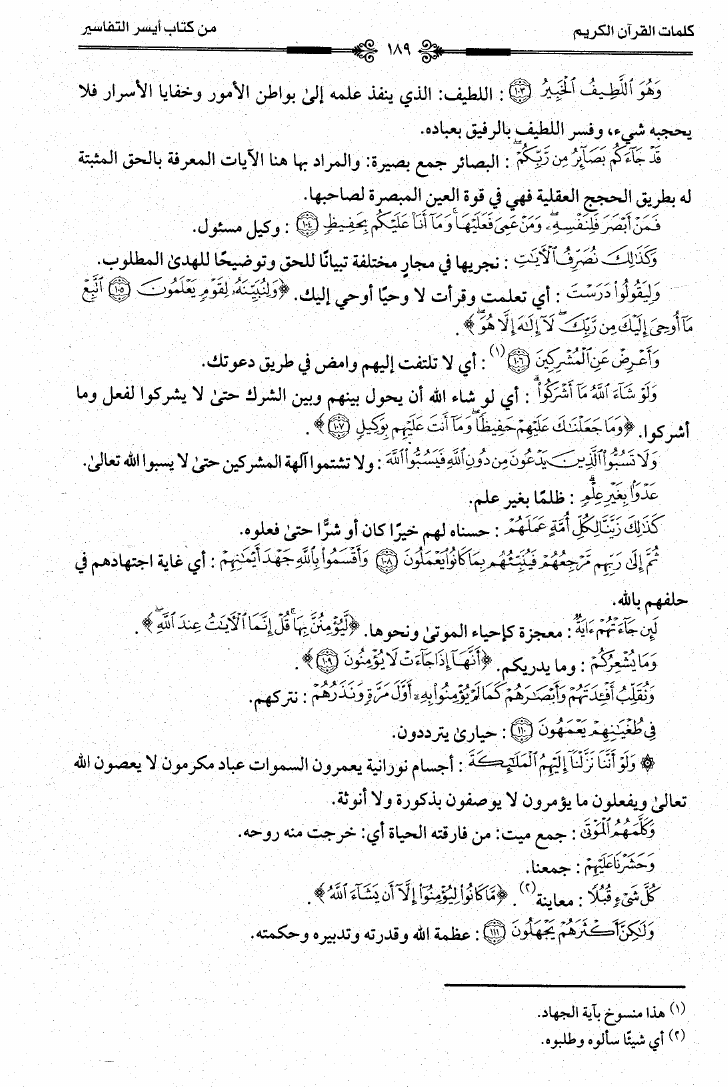 كلمات القرآن الكريم
من كتاب أيسر التفاسير
١٨٩
وَهُوَ ٱللَّطِيفُ ٱلْخَبِيرُ ١٠٣ : اللطيف: الذي ينفذ علمه إلىٰ بواطن الأمور وخفايا الأسرار فلا
يحجبه شيء، وفسر اللطيف بالرفيق بعباده.
قَدْ جَآءَكُم بَصَآئِرُ مِن رَّبِّكُمْ : البصائر جمع بصيرة: والمراد بها هنا الآيات المعرفة بالحق المثبتة
له بطريق الحجج العقلية فهي في قوة العين المبصرة لصاحبها.
فَمَنْ أَبْصَرَ فَلِنَفْسِهِۦ وَمَنْ عَمِىَ فَعَلَيْهَا وَمَآ أَنَا۠ عَلَيْكُم بِحَفِيظٍ ١٠٤ : وكيل مسئول.
وَكَذَٰلِكَ نُصَرِّفُ ٱلْءَايَٰتِ : نجريها في مجارٍ مختلفة تبيانًا للحق وتوضيحًا للهدىٰ المطلوب.
وَلِيَقُولُوا۟ دَرَسْتَ : أي تعلمت وقرأت لا وحيًا أوحي إليك. ﴿وَلِنُبَيِّنَهُۥ لِقَوْمٍ يَعْلَمُونَ ١٠٥ ٱتَّبِعْ
مَآ أُوحِىَ إِلَيْكَ مِن رَّبِّكَ لَآ إِلَٰهَ إِلَّا هُوَ﴾.
وَأَعْرِضْ عَنِ ٱلْمُشْرِكِينَ ١٠٦ (١): أي لا تلتفت إليهم وامض في طريق دعوتك.
وَلَوْ شَآءَ ٱللَّهُ مَآ أَشْرَكُوا۟ : أي لو شاء الله أن يحول بينهم وبين الشرك حتىٰ لا يشركوا لفعل وما
أشركوا. ﴿وَمَا جَعَلْنَٰكَ عَلَيْهِمْ حَفِيظًا وَمَآ أَنتَ عَلَيْهِم بِوَكِيلٍ ١٠٧﴾.
وَلَا تَسُبُّوا۟ ٱلَّذِينَ يَدْعُونَ مِن دُونِ ٱللَّهِ فَيَسُبُّوا۟ ٱللَّهَ : ولا تشتموا آلهة المشركين حتىٰ لا يسبوا الله تعالىٰ.
عَدْوًۢا بِغَيْرِ عِلْمٍ : ظلمًا بغير علم.
كَذَٰلِكَ زَيَّنَّا لِكُلِّ أُمَّةٍ عَمَلَهُمْ : حسناه لهم خيرًا كان أو شرًّا حتىٰ فعلوه.
ثُمَّ إِلَىٰ رَبِّهِم مَّرْجِعُهُمْ فَيُنَبِّئُهُم بِمَا كَانُوا۟ يَعْمَلُونَ ١٠٨ وَأَقْسَمُوا۟ بِٱللَّهِ جَهْدَ أَيْمَٰنِهِمْ : أي غاية اجتهادهم في
حلفهم بالله.
لَئِن جَآءَتْهُمْ ءَايَةٌ : معجزة كإحياء الموتىٰ ونحوها. ﴿لَّيُؤْمِنُنَّ بِهَا قُلْ إِنَّمَا ٱلْءَايَٰتُ عِندَ ٱللَّهِ﴾.
وَمَا يُشْعِرُكُمْ : وما يدريكم. ﴿أَنَّهَآ إِذَا جَآءَتْ لَا يُؤْمِنُونَ ١٠٩﴾.
وَنُقَلِّبُ أَفْـِٔدَتَهُمْ وَأَبْصَٰرَهُمْ كَمَا لَمْ يُؤْمِنُوا۟ بِهِۦٓ أَوَّلَ مَرَّةٍ وَنَذَرُهُمْ : نتركهم.
فِى طُغْيَٰنِهِمْ يَعْمَهُونَ ١١٠ : حيارىٰ يترددون.
۞ وَلَوْ أَنَّنَا نَزَّلْنَآ إِلَيْهِمُ ٱلْمَلَٰٓئِكَةَ : أجسام نورانية يعمرون السموات عباد مكرمون لا يعصون الله
تعالىٰ ويفعلون ما يؤمرون لا يوصفون بذكورة ولا أنوثة.
وَكَلَّمَهُمُ ٱلْمَوْتَىٰ : جمع ميت: من فارقته الحياة أي: خرجت منه روحه.
وَحَشَرْنَا عَلَيْهِمْ : جمعنا.
كُلَّ شَىْءٍ قُبُلًا : معاينة(٢). ﴿مَّا كَانُوا۟ لِيُؤْمِنُوٓا۟ إِلَّآ أَن يَشَآءَ ٱللَّهُ﴾.
وَلَٰكِنَّ أَكْثَرَهُمْ يَجْهَلُونَ ١١١ : عظمة الله وقدرته وتدبيره وحكمته.
(١) هذا منسوخ بآية الجهاد.
(٢) أي شيئًا سألوه وطلبوه.